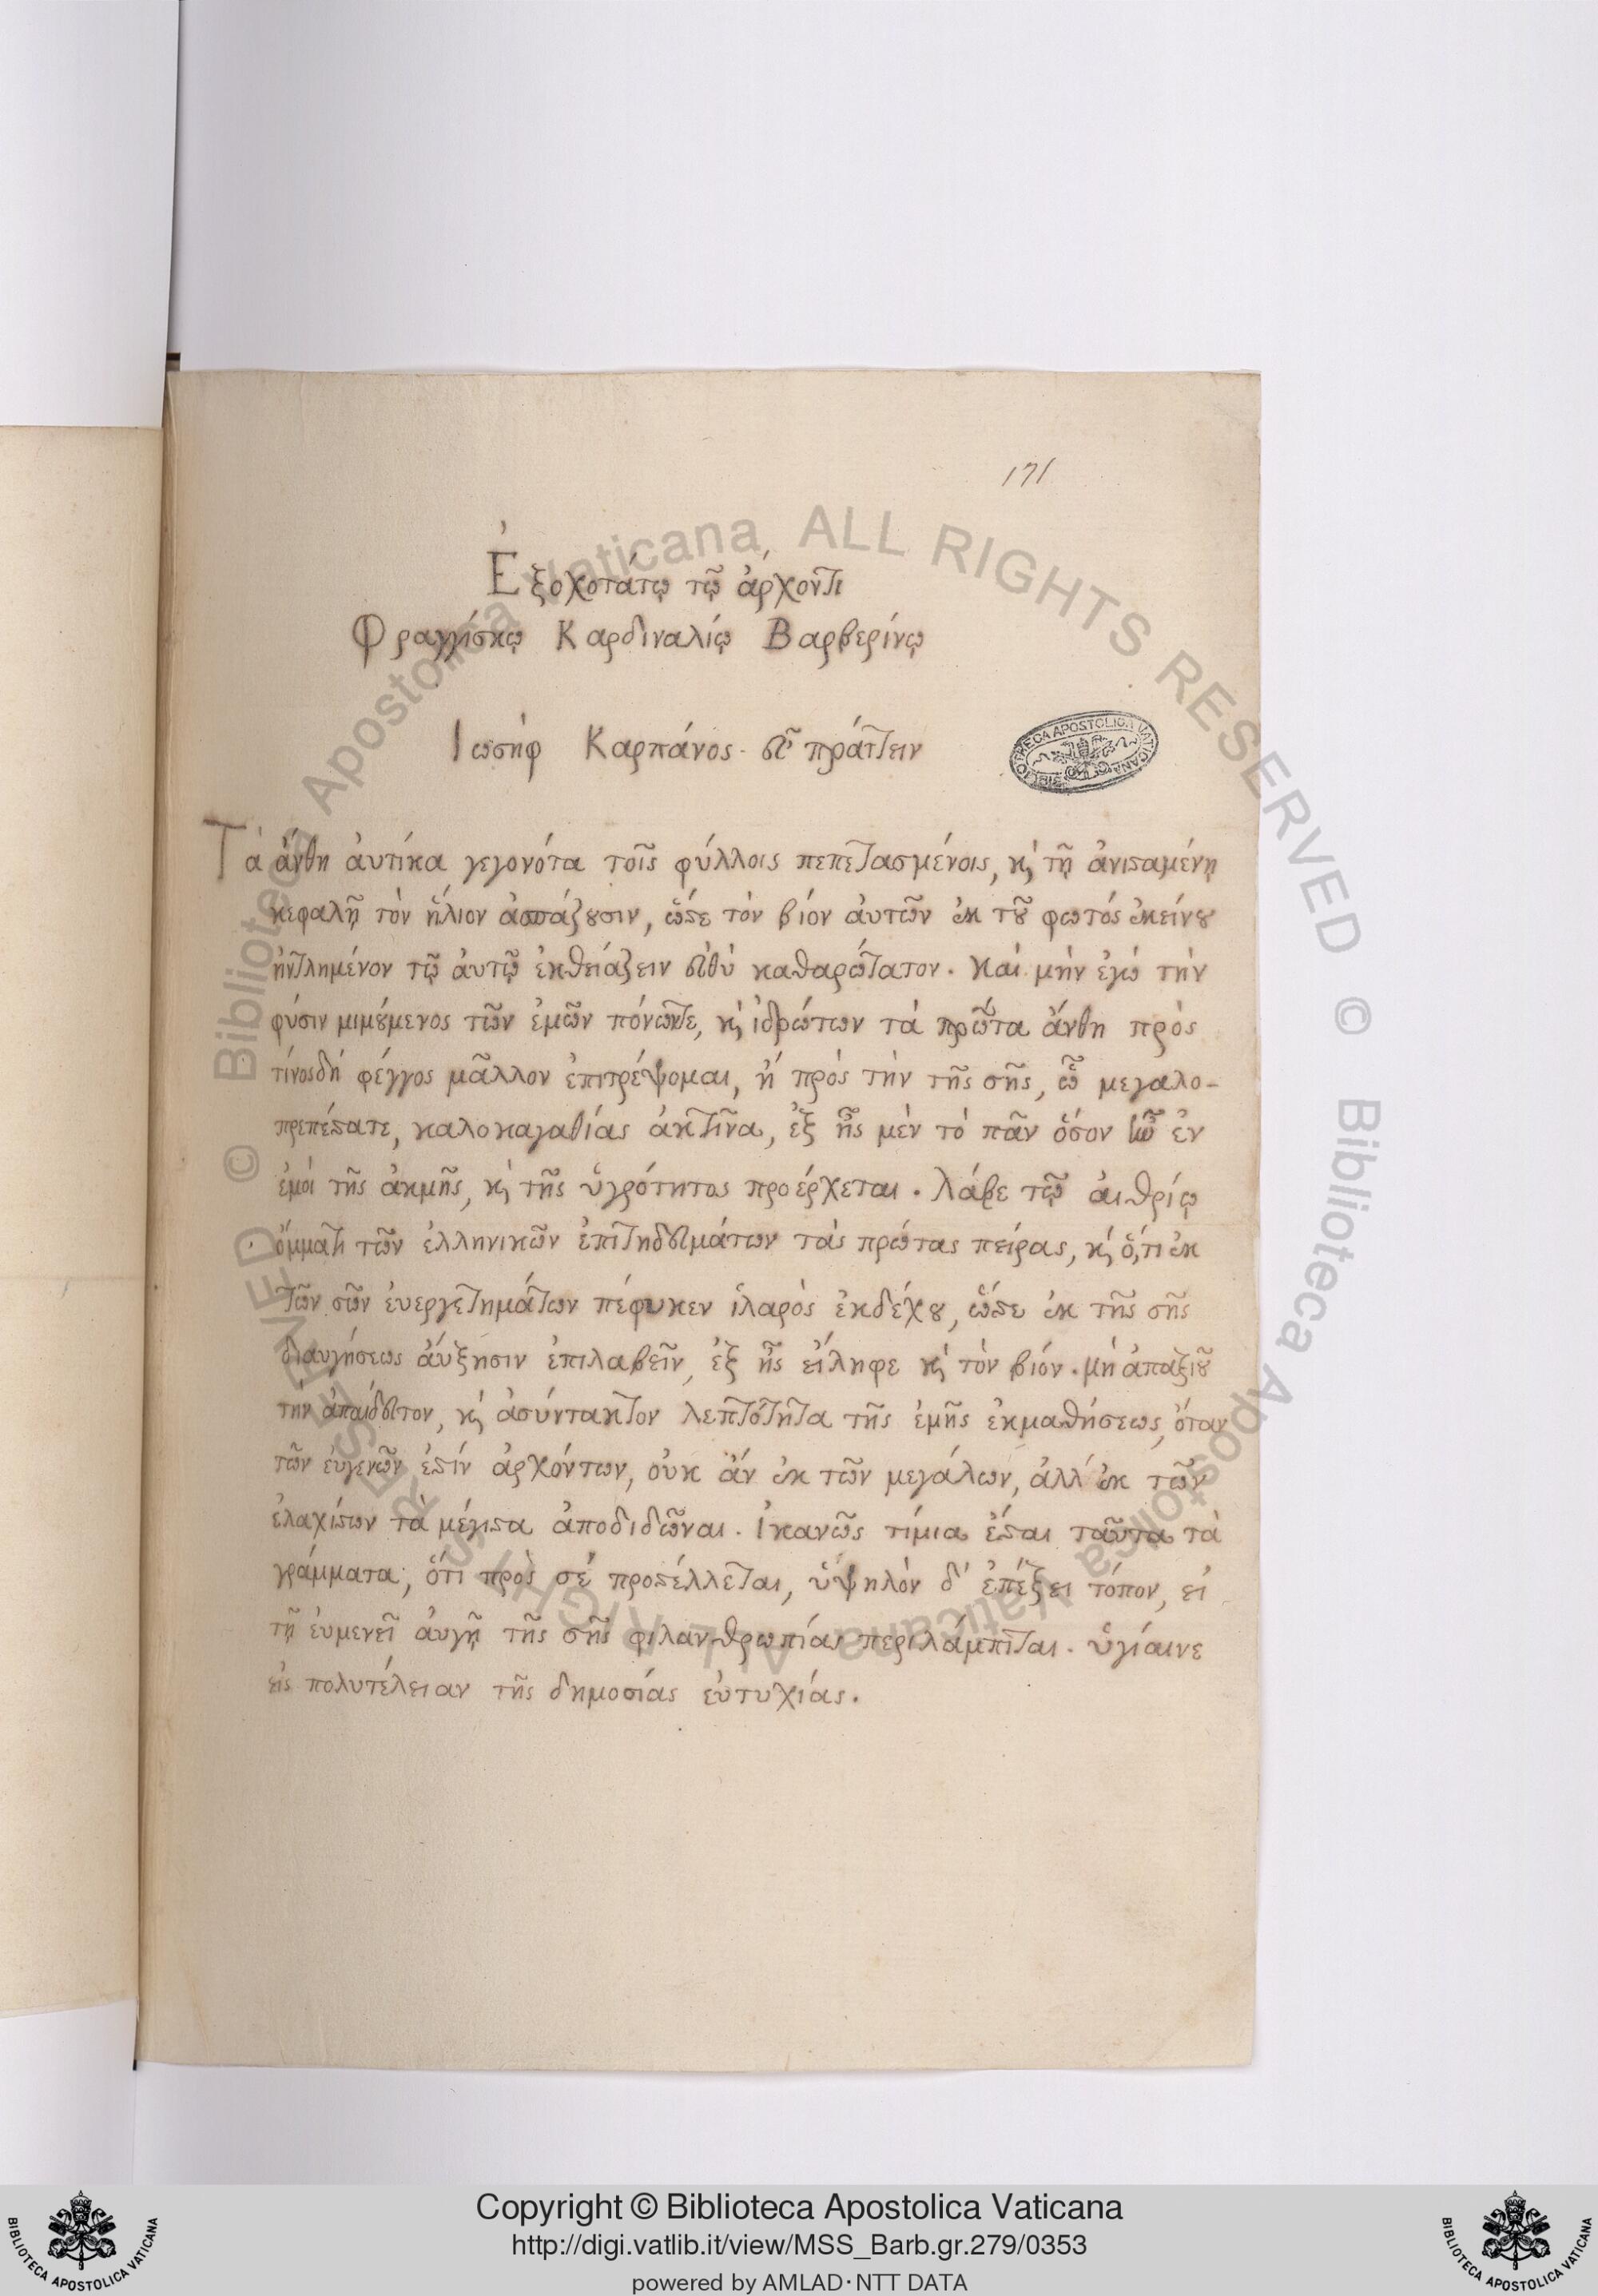 171
Ἐξοχοτάτῳ τῷ ἀρχοντι
Φραγγίσκῳ Καρδιναλίῳ Βαρβερίνῳ
Ιωσὴφ Καρπάνος. εὖ πράττειν
Τὰ ἄνθη ἀυτίκα γεγονότα τοῖς φύλλοις πεπετασμένοις, κὶ τῇ ἀνισταμένῃ
κεφαλῇ τὸν ἥλιον ἀσπάζουσιν, ὥστε τὸν βίον ἀυτῶν ἐκ τοῦ φωτός ἐκείνου
ἠντλημένον τῷ ἀυτῷ ἐκθειάζειν εὐθὺ καθαρώτατον. Καὶ μὴν ἐγὼ τὴν
φύσιν μιμούμενος τῶν ἐμῶν πόνωντε, κὶ ἱδρώτων τὰ πρῶτα ἄνθη πρὸς
τίνοςδή φέγγος μᾶλλον ἐπιτρέψομαι, ἢ πρὸς τὴν τῆς σῆς, ὦ μεγαλο-
πρεπέστατε, καλοκαγαθίας ἀκτῖνα, ἐξ ἧς μὲν τὸ πᾶν ὅσον ἐν
ἐμοὶ τῆς ἀκμῆς, κὶ τῆς ὑγρότητος προέρχεται. Λάβε τῷ ἀιθρίῳ
ὄμματι τῶν ἑλληνικῶν ἐπιτηδευμάτων τὰς πρώτας πείρας, κὶ ὅ,τι ἐκ
τῶν σῶν ἐυεργετημάτων πέφυκεν ἱλαρὸς ἐκδέχου, ὥστε ἐκ τῆς σῆς
διαυγήσεως ἄυξησιν ἐπιλαβεῖν, ἐξ ἧς εἴληφε κὶ τὸν βίον. μὴ ἀπαξιοῦ
τὴν ἀπαίδευτον, κὶ ἀσύντακτον λεπτότητα τῆς ἐμῆς ἐκμαθήσεως, ὅταν
τῶν ἐυγενῶν ἐστίν ἀρχόντων, οὐκ ἂν ἐκ τῶν μεγάλων, ἀλλ' ἐκ τῶν
ἐλαχίστων τὰ μέγιστα ἀποδιδῶναι. Ἱκανῶς τίμια ἔσται ταῦτα τὰ
γράμματα, ὅτι πρὸς σέ προστέλλεται, ὑψηλὸν δ' ἐπέξει τόπον, εἰ
τῇ ἐυμενεῖ ἀυγῇ τῆς σῆς φιλανθρωπίας περιλάμπται. ὑγίαινε
εἰς πολυτέλειαν τῆς δημοσίας ἐυτυχίας.
BIBLIOTHECA APOSTOLICA VATICANA
© Biblioteca Apostolica Vaticana, ALL RIGHTS RESERVED © Biblioteca Apostolica Vaticana, ALL RIGHTS RESERVED
Copyright © Biblioteca Apostolica Vaticana
http://digi.vatlib.it/view/MSS_Barb.gr.279/0353
powered by AMLAD·NTT DATA
BIBLIOTECA APOSTOLICA VATICANA
BIBLIOTECA APOSTOLICA VATICANA